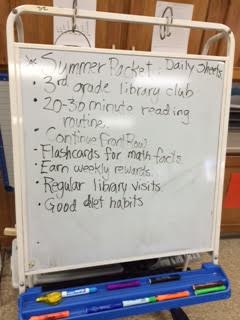 • Summer Packet. Daily Sheets
• 3rd grade library club
• 20-30 minute reading
routine.
• Continue Front Row
• Flashcards for math facts
• Earn weekly rewards.
• Regular library visits.
• Good diet habits
•